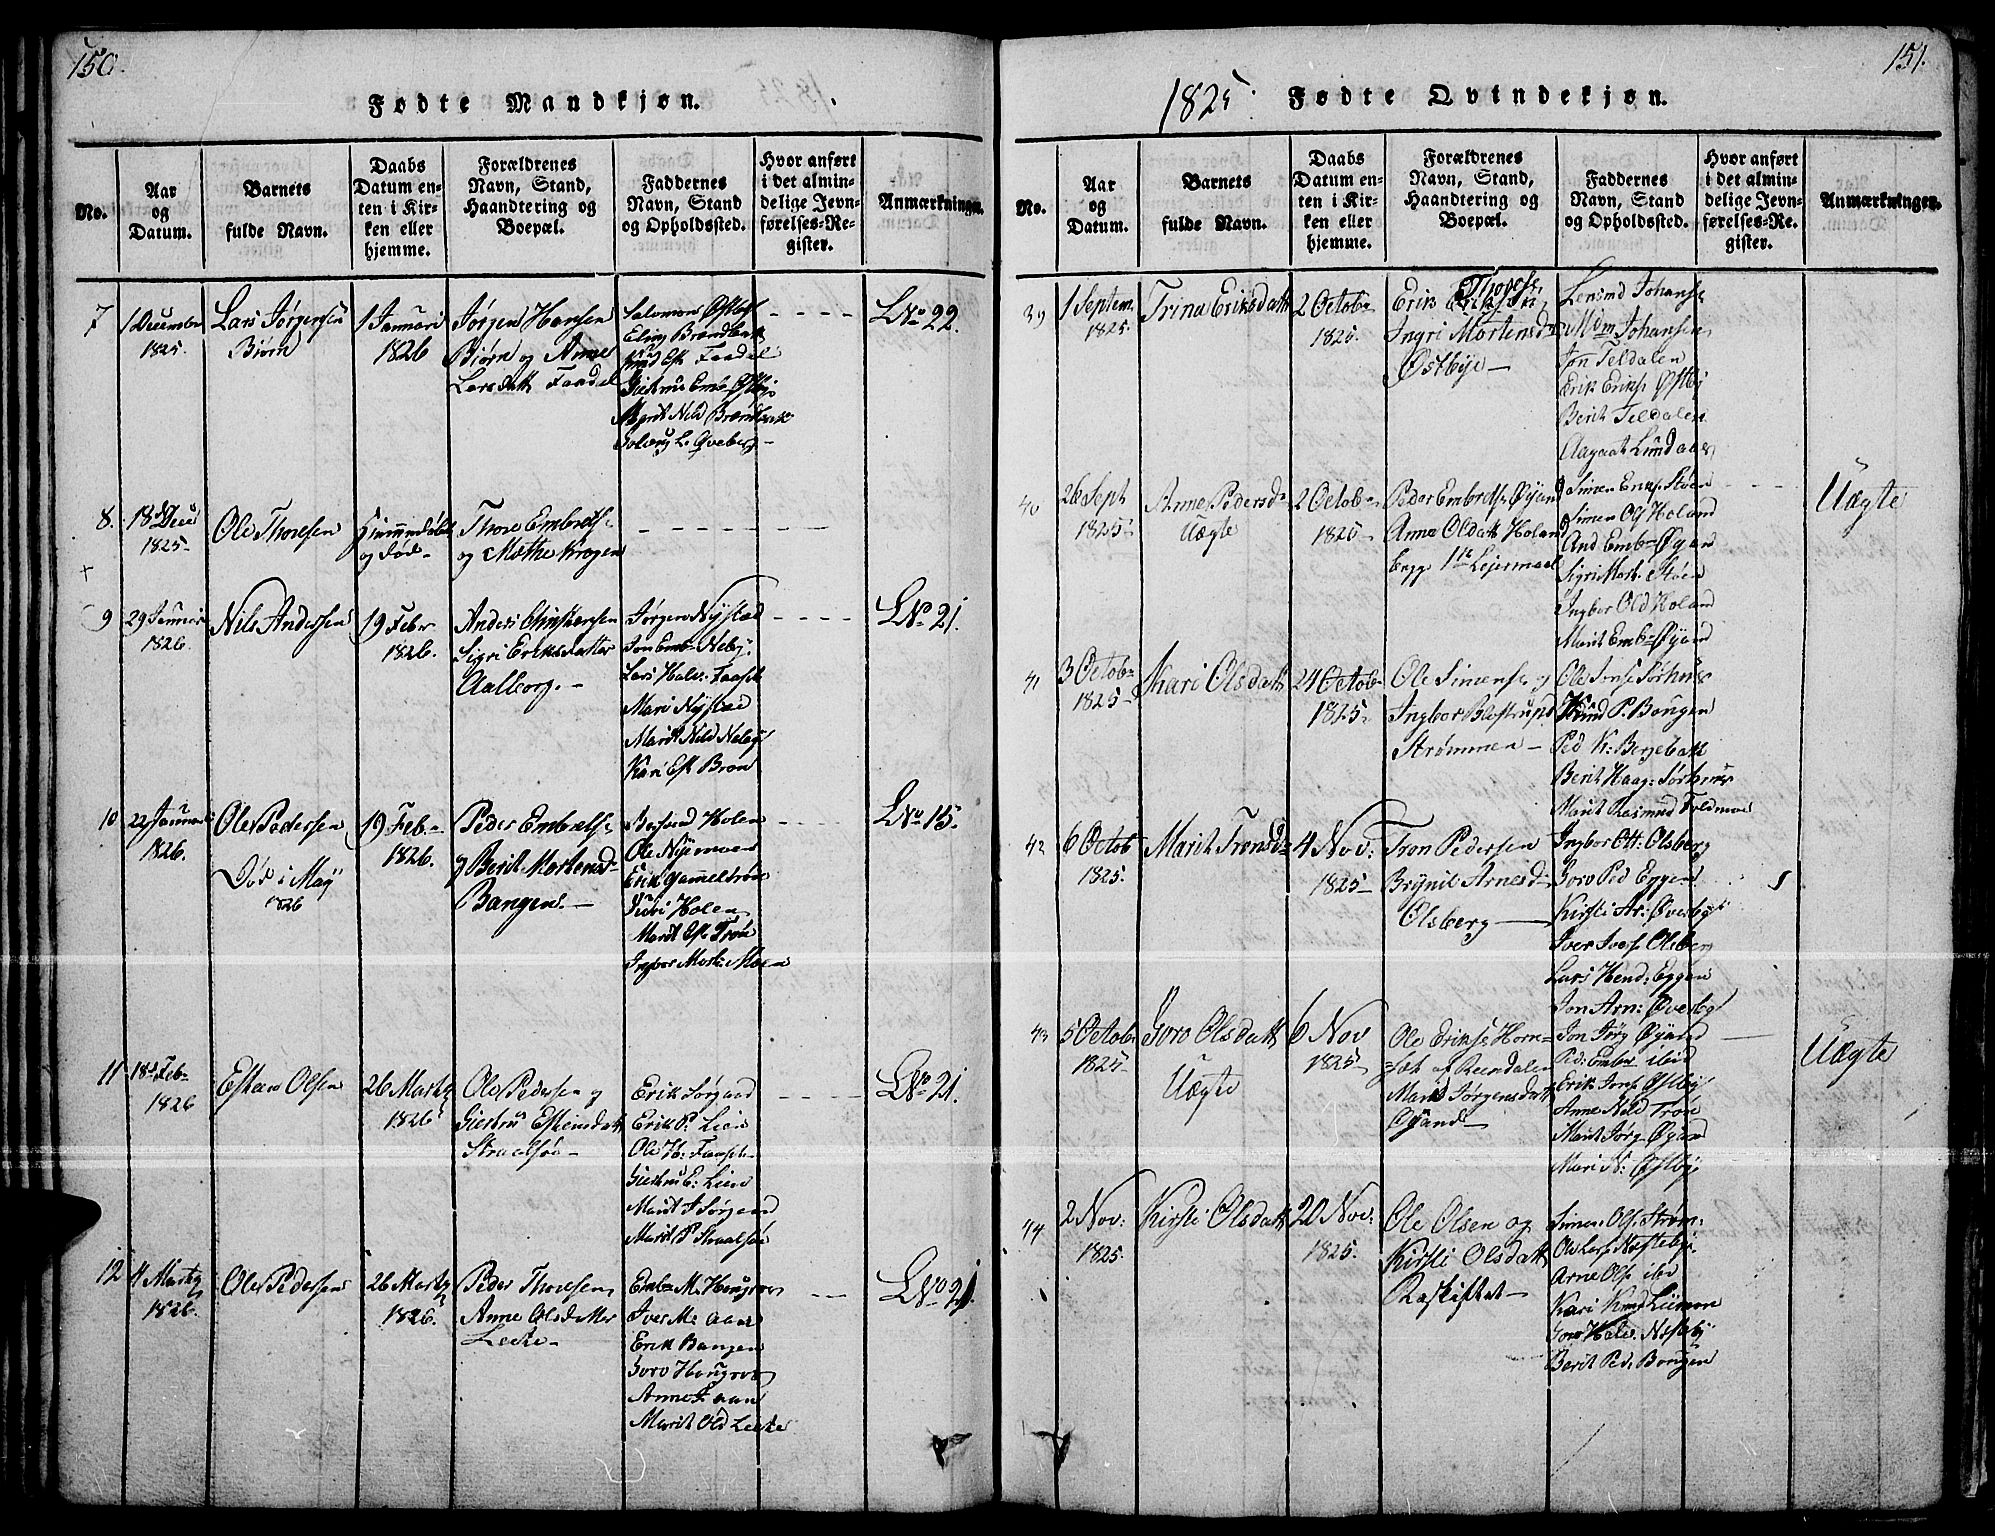 150.
Fødte Mandkjøn.
No.
Aar
og
Datum.
Barnets
fulde Navn.
Daabs
Datum en-
ten i Kir-
ken eller
hjemme.
Forældrenes
Navn, Stand,
Haandtering og
Boepæl.
Faddernes
Navn, Stand
og Opholdssted.
Hvor anført
i det almin-
delige Jevn-
førelses-Re-
gister.
Anmærkninger.
7
1 Decembr
1825.
Lars Jørgensen
Biørn
1 Januari
1826
Jørgen Hansen
Biørn og Anne
Larsdatt Faadal
Salomon Østby
Eling Brændbak
Knud Faadal
Giertru Østby
Marit Nild Brændbak
Solveg L. Qveberg
L No 22.
8.
18 Dec
1825
Ole Thoresen
Hiemmedøbt
og død
Thore Embretse
og Mæthe Krogen
9
29 Januari
1826.
Nils Andersen
19 Febr
1826.
Anders Christensen
Sigri Eriksdatter
Aalborg.
Jørgen Nystad
Jon Emb Neby
Lars Halv: Faaset
Mari Nystad
Marit Nild Neby
Kari Broen
L No 21.
10
22 Januar
1826.
Ole Pedersen
Død i May
1826
19 Feb
1826.
Peder Embretse
og Berit Mortensd
Bangen.
Holen
Ole Nyemoen
Erik Gammeltrøen
Siri Holen
Marit Trøen
Ingbor Mort: Moen
L No 15.
11
18 Feb
1826
Esten Olsen
26 Marty
1826
Ole Pedersen og
Giertru Estensdatt
Straalsøe
Erik Sørgaard
Erik P. Lien
Ole H: Faaset
Giertru E: Lien
Marit J Sørgaard
Marit P Straalsøe
L No 21.
12
4 Marty
1826.
Ole Pedersen
26 Marty
1826.
Peder Thoresen
Anne Olsdatter
Leete
Emb M. Hougroe
Iver M: aaen
Erik Bangen
Goro Hougroe
Anne F aaen
Marit Old Leete
L No 21.
151.
1825.
Fødte Qvindekjøn.
No.
Aar
og
Datum.
Barnets
fulde Navn.
Daabs
Datum en-
ten i Kir-
ken eller
hjemme.
Forældrenes
Navn, Stand,
Haandtering og
Boepæl.
Faddernes
Navn, Stand
og Opholdssted.
Hvor anført
i det almin-
delige Jevn-
førelses-Re-
gister.
Anmærkninger.
39
1 Septem
1825.
Trina Eriksdatt
2 Octob
1825.
Thoress
Erik
Ingri Mortensd
Østbye
Johanse
Mdm Johansen
Jon Teldalen
Erik Eriks Østby
Berit Teldalen
Aagaat Lundaaes
40
26 Sept
1825
Anne Pedersd
Uægte
2 Octob
1825
Peder Embrets Øyand
Anne Olsdatt Holand
begge 1te Lejermaal
Simen Enks Støen
Simen Ols Holand
And Emb Øyan
Sigri Mort Støen
Ingbor Old Holand
Marit Emb Øyand
Uægte
41
3 Octob
1825
Kari Olsdatt
24 Octob
1825
Ole Simense og
Ingbor
Strømmen
Ole Jonse Sørhuus
P. Bongen
Ped K: Bergebak
Berit Haag: Sørhuus
Marit Rasmusd Foldmoe
42
6 Octob
1825.
Marit Tronsd
4 Nov:
1825
Tron Pedersen
Brynil Arnesd
Olsberg
Ingbor Ott: Olsberg
Goro Ped Eggen
Kirsti Ar: Øverby
Iver Ivers Olsberg
Lars Hend: Eggen
Jon Arn: Øverby
43
5 Octob
1825
Goro Olsdatt
Uægte
6 Nov
1825
Ole Erikse Horn-
set af Rendalen
Marit Jørgensdatt
Øyand
Jon Jørg Øyand
Ped: Embr ibid
Erik Jons Østby
Anne Nild Trøen
Marit Jørg Øyand
Mari N: Østby
Uægte
44
2 Nov:
1825.
Kirsti Olsdatt
20 Nov:
1825.
Ole Olsen og
Kirsti Olsdatt
Raskiftet
Simen Ols. Strøm:
Ole Lars Næsteby
Arne Ols ibd
Kari Knud Liemoe
Goro Halv: Næsteby
Berit Ped: Bongen